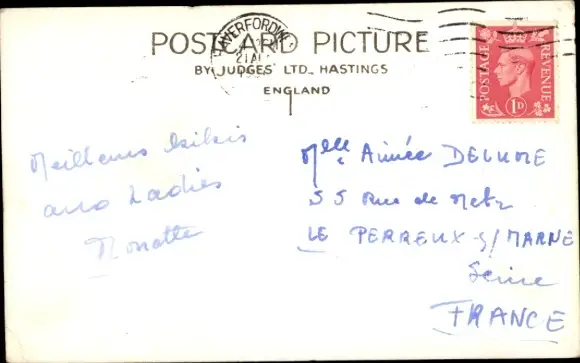 POST CARD PICTURE
BY JUDGES' LTD., HASTINGS
ENGLAND
HAVERFORDWE
21
POSTAGE
REVENUE
1D
Meilleurs
aux Ladies
Monette
Mlle Aimée DELUME
55 Rue de Metz
LE PERREUX S/MARNE
Seine
FRANCE